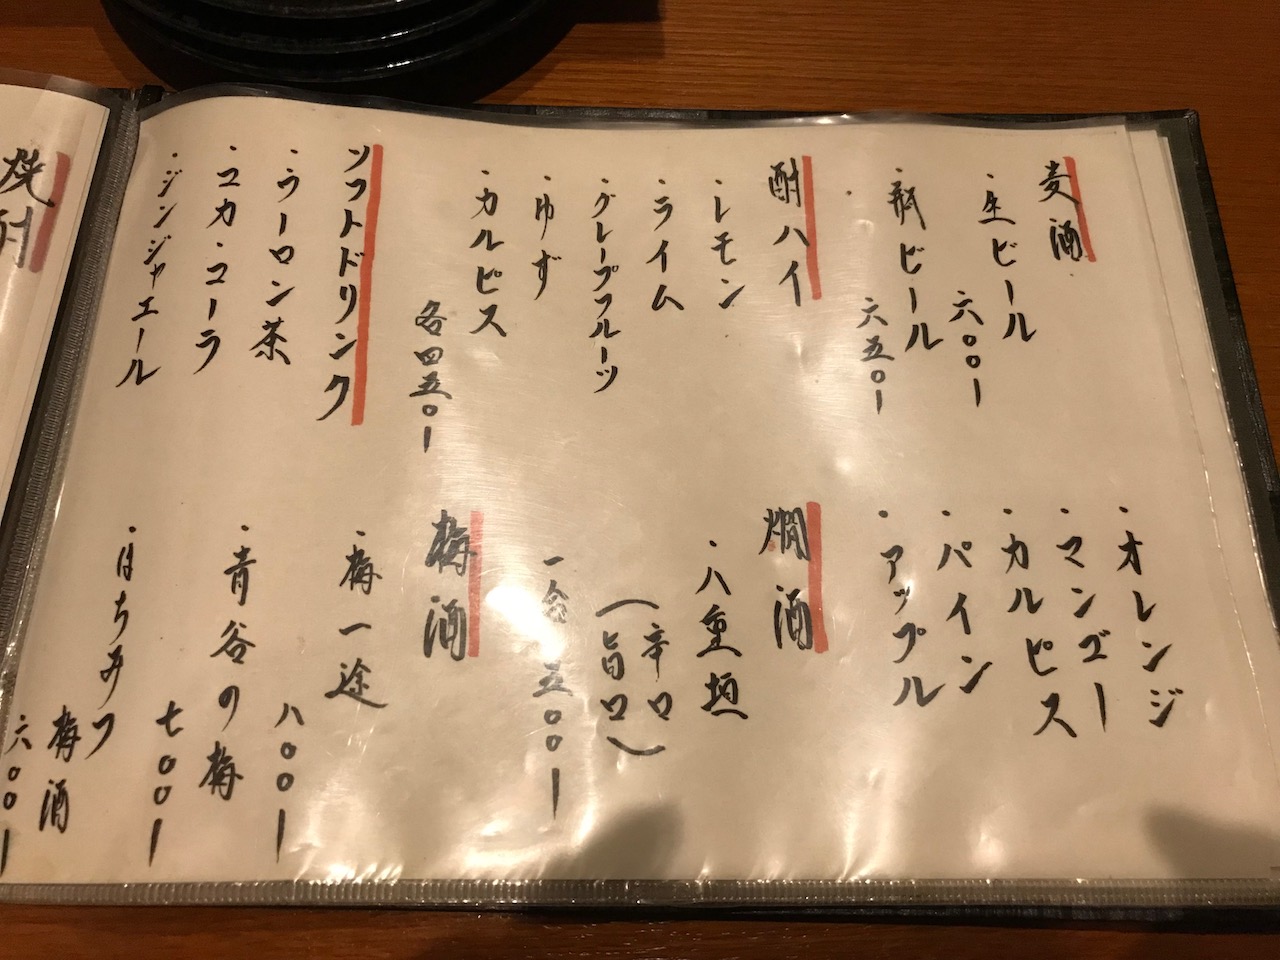 麦酒
・生ビール
六〇〇ー
・瓶ビール
六五〇ー
酎ハイ
・レモン
・ライム
・グレープフルーツ
・ゆず
・カルピス
各四五〇ー
ソフトドリンク
・ウーロン茶
・コカ・コーラ
・ジンジャエール
・オレンジ
・マンゴー
・カルピス
・パイン
・アップル
燗酒
・八重垣
(辛口
旨口)
一合 五〇〇ー
梅酒
・梅一途
八〇〇ー
・青谷の梅
七〇〇ー
・はちみつ
梅酒
六〇〇ー
焼酎